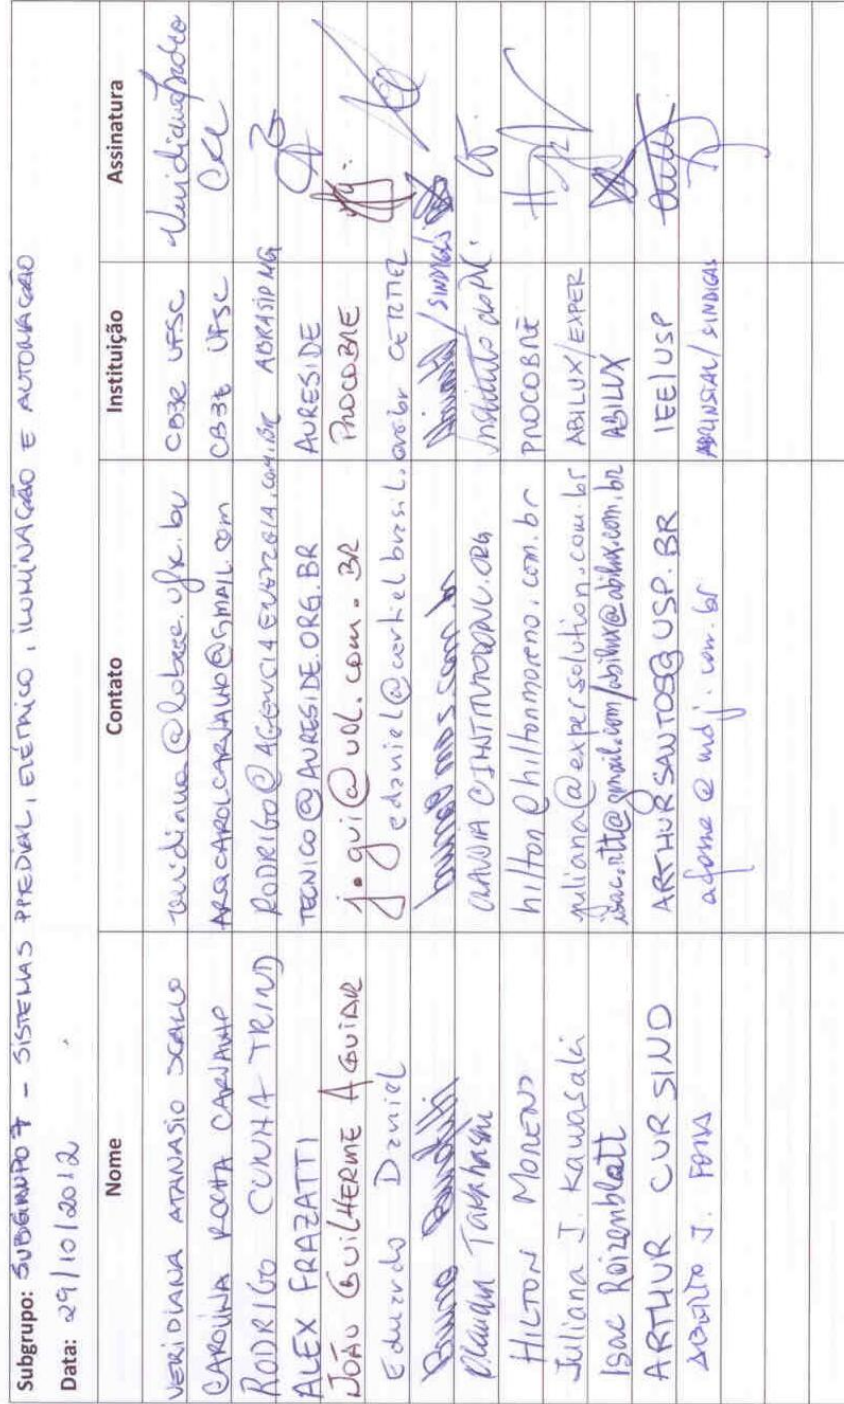 Subgrupo: SUBGRUPO 7 - SISTEMAS PREDIAL, ELÉTRICO, ILUMINAÇÃO E AUTOMAÇÃO
Data: 29/10/2012
Nome Contato Instituição Assinatura
VERIDIANA ATANASIO SCALCO veridiana@labeee.ufsc.br CB3E UFSC
CAROLINA ROCHA CARVALHO ARQCAROLCARVALHO@GMAIL.COM CB3E UFSC
RODRIGO CUNHA TRIND RODRIGO@AGENCIAENERGIA.COM.BR ABRASIP MG
ALEX FRAZATTI TECNICO@AURESIDE.ORG.BR AURESIDE
JOÃO GUILHERME AGUIAR j.gui@uol.com.BR PROCOBRE
Eduardo Daniel edaniel@certielbrasil.org.br CERTIEL
Bruno / SINDIGÁS
Claudia Takahashi CLAUDIA@INSTITUTODOPVC.ORG Instituto do PVC
HILTON MORENO hilton@hiltonmoreno.com.br PROCOBRE
Juliana J. Kawasaki juliana@expersolution.com.br ABILUX/EXPER
Isac Roizenblatt isac.ritt@gmail.com/abilux@abilux.com.br ABILUX
ARTHUR CURSINO ARTHURSANTOS@USP.BR IEE/USP
ALBERTO J. FOSSA afossa@mdj.com.br ABRINSTAL/SINDIGAS